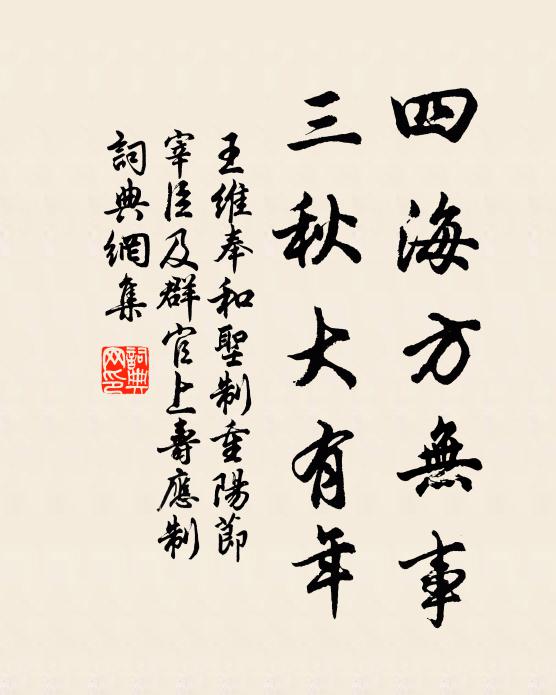 四海方無事
三秋大有年
王維奉和聖制重陽節
宰臣及群官上壽應制
詞典網集
詞典網印